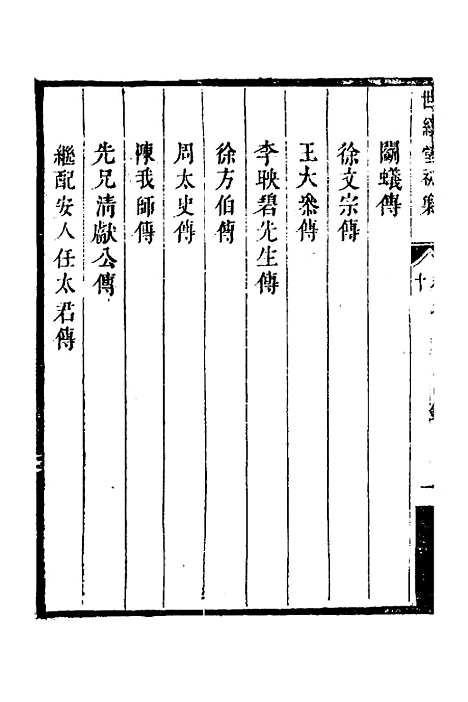 鬬蟻傳
徐文宗傳
王大叅傳
李映碧先生傳
徐方伯傳
周太史傳
陳我師傳
先兄清獻公傳
繼配安人任太君傳
世經堂初集